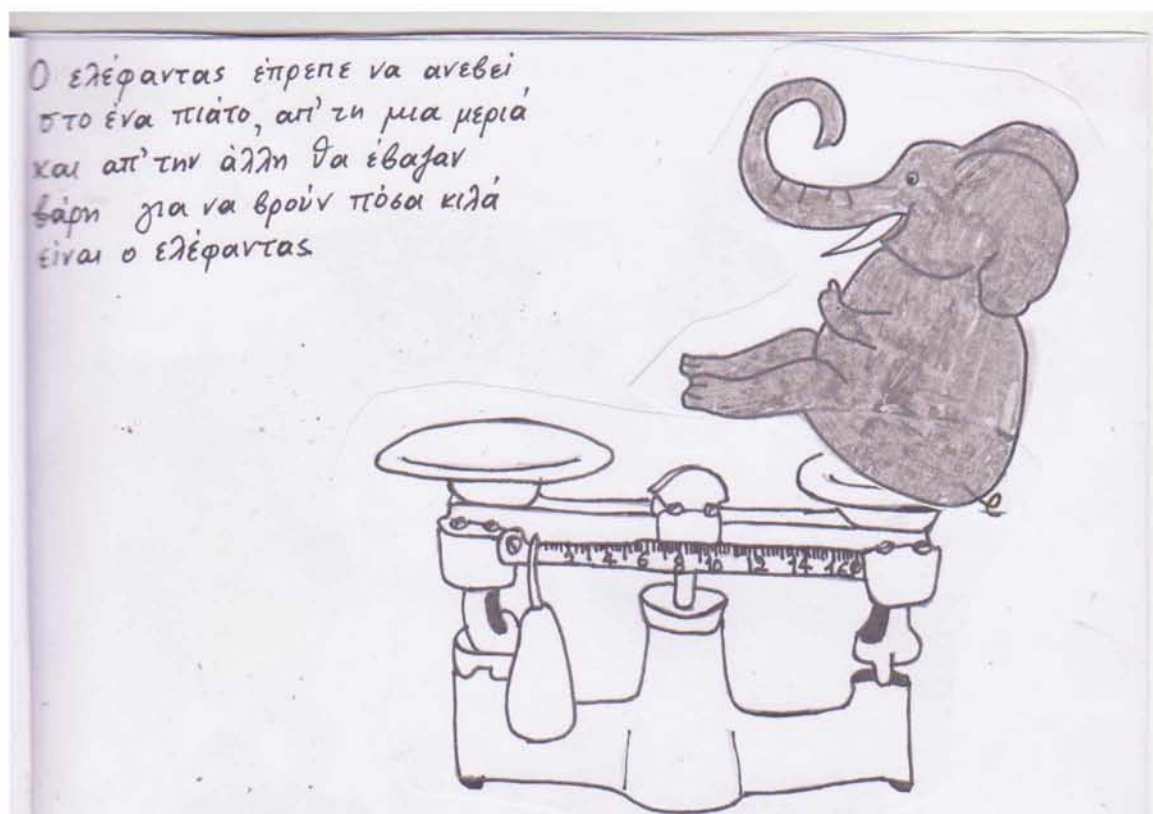 Ο ελέφαντας έπρεπε να ανεβεί
στο ένα πιάτο, απ' τη μια μεριά
και απ' την άλλη θα έβαζαν
βάρη για να βρούν πόσα κιλά
είναι ο ελέφαντας.
2 4 6 8 10 12 14 16